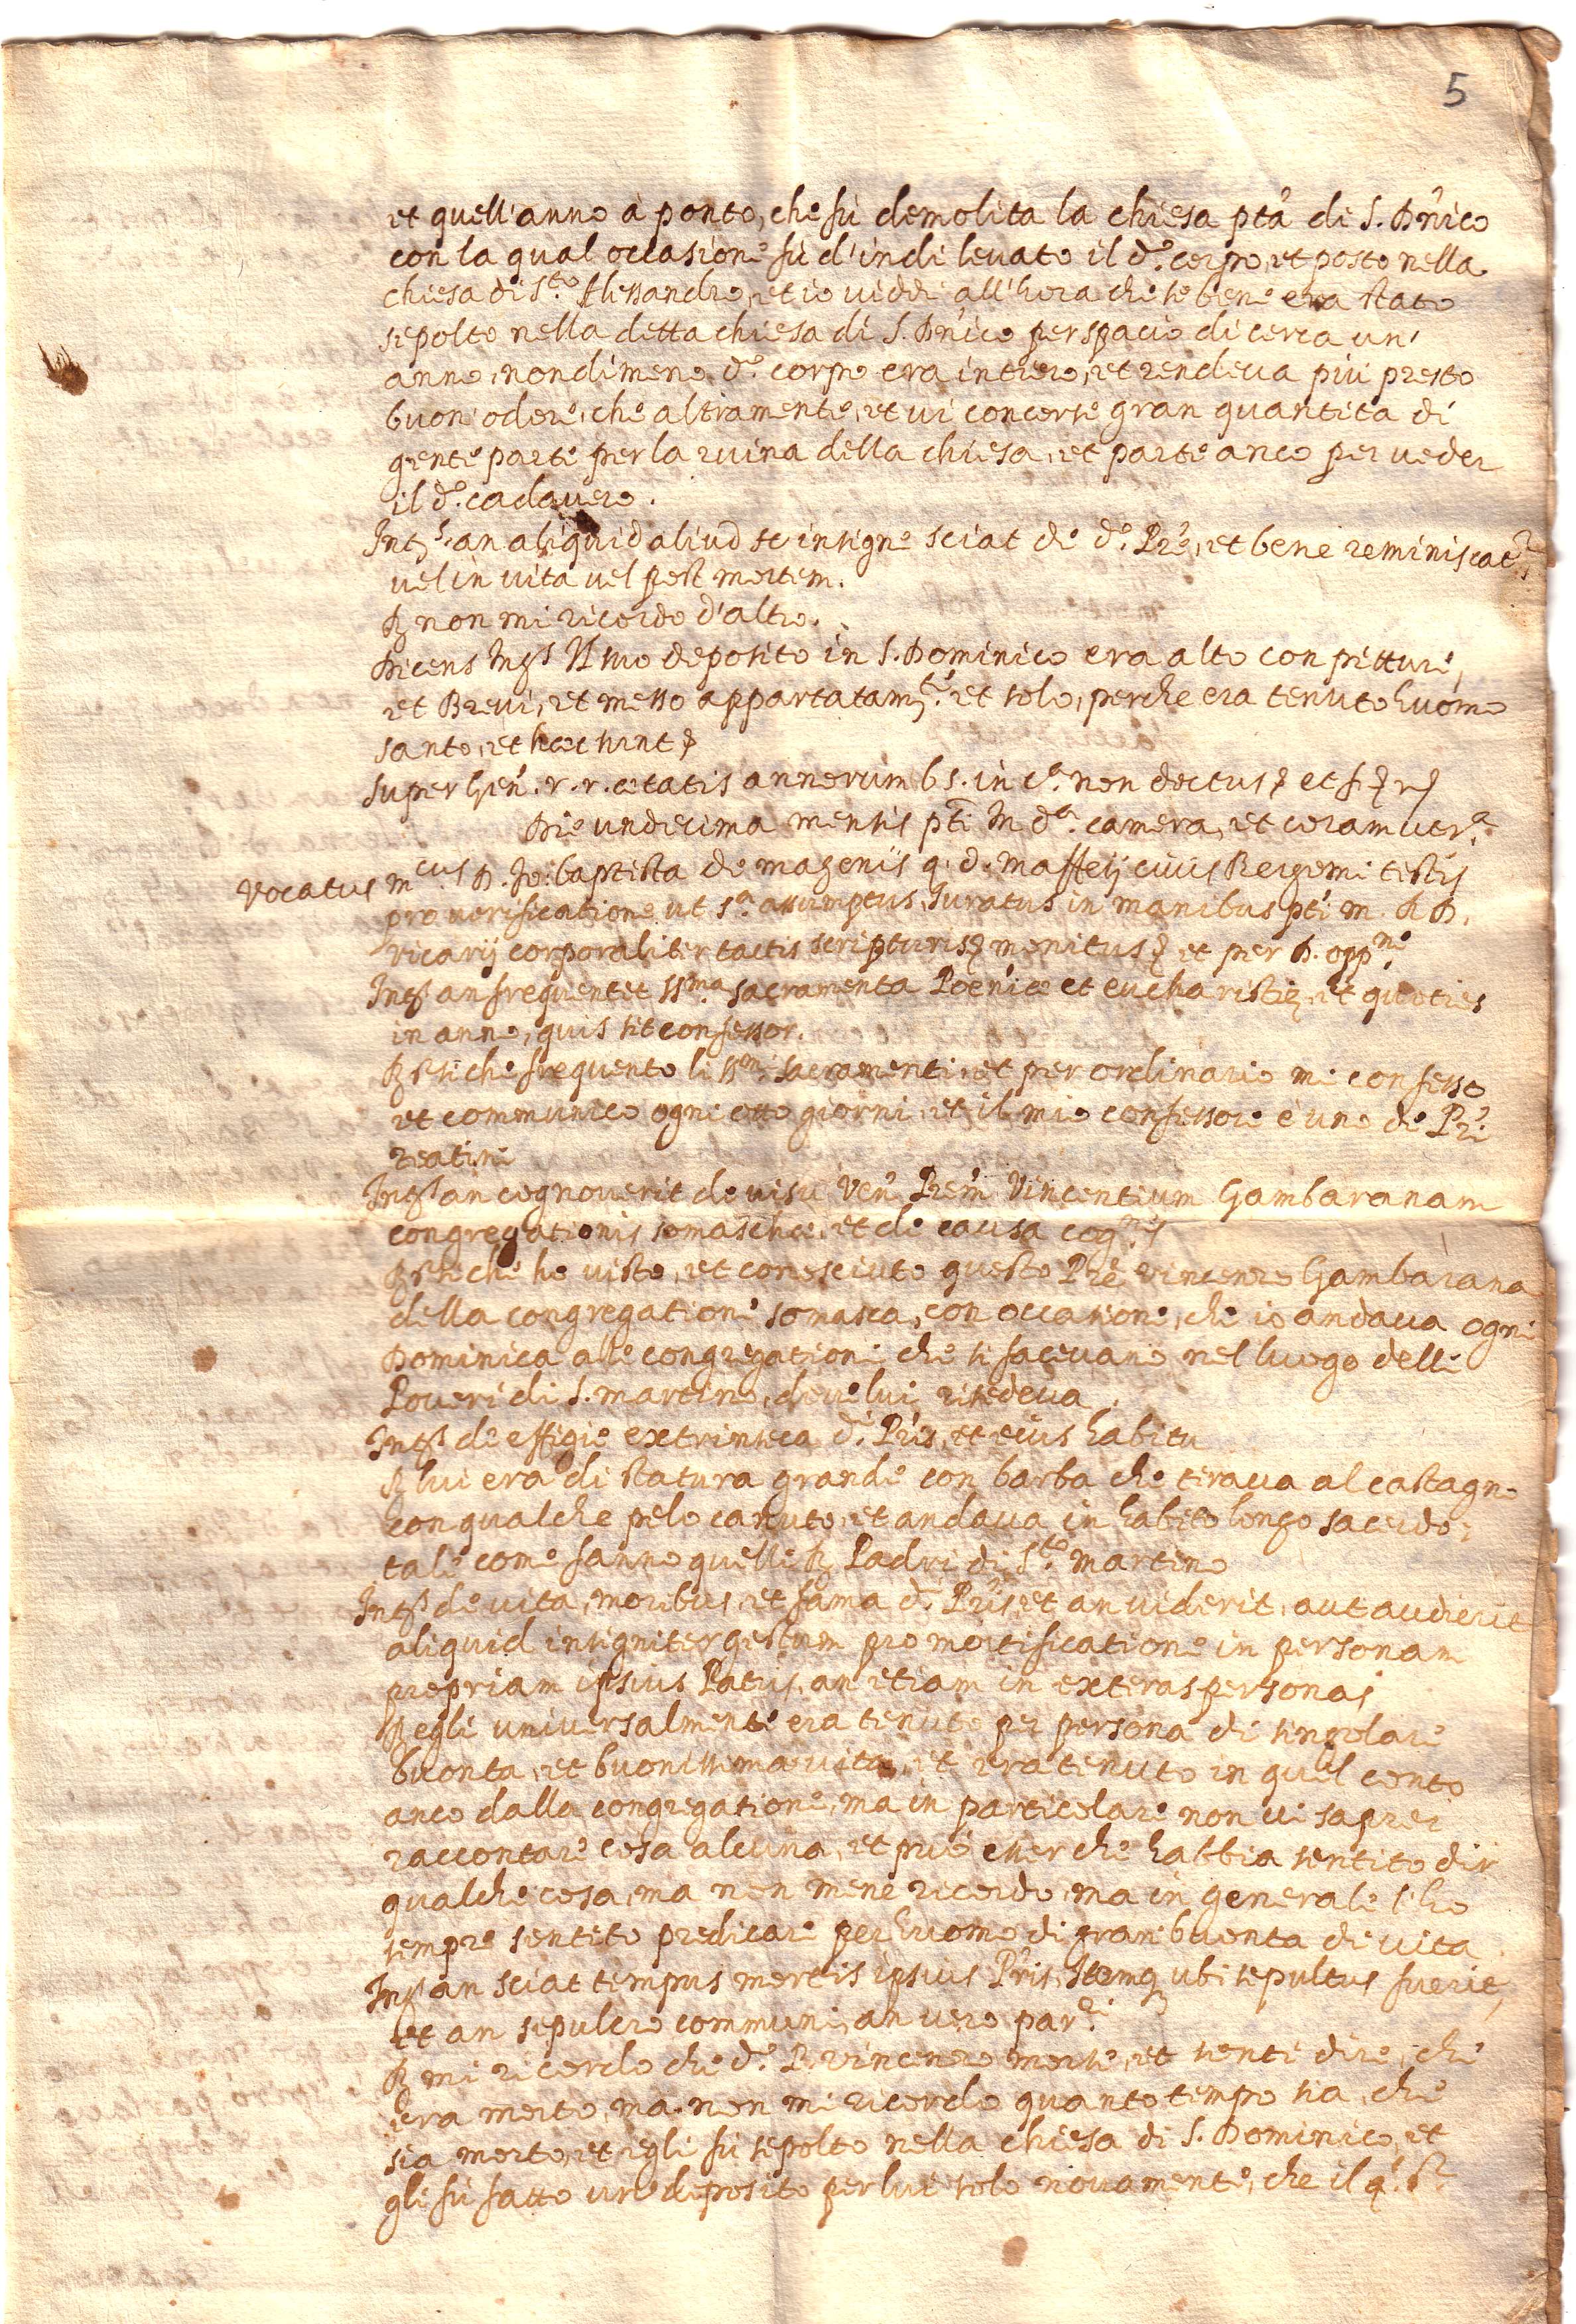 5
et quell'anno à ponto, che fù demolita la chiesa ptà di S. Dn'ico
con la qual occasione fù d'indi levato il d.º corpo, et posto nella
chiesa di S.to Alessandro, et io viddi all'hora che se bene era stato
sepolto nella detta chiesa di S. Dn'ico per spacio di cerca un'
anno, nondimeno d.º corpo era intiero, et rendeva più presto
buon odore, che altramente, et vi concorse gran quantità di
gente parte per la ruina della chiesa, et parte anco per veder
il d.º cadavero.
Intz.s an aliquid aliud se insigne sciat de d.º Prē, et bene reminiscatr
vel in vita vel post mortem.
R non mi ricordo d'altro.
Dicens Ings Il suo deposito in S. Dominico era alto con pitture,
et Brevi, et messo appartatam.te et solo, perche era tenuto huomo
santo, et hæc sunt
super gen. r. r. ætatis annorum 65. in c.a non doctus et
Die undecima mensis pti In d.a camera, et coram ver.a
Vocatus m.cus D. Jo: baptista de mazeniis q. d. Maffeij civis Bergomi testis
pro verificatione ut s.a assumptus, Juratus in manibus pti m. R D.
vicarij corporaliter tactis scripturis monitus et per D. opp.ne
Ints an frequentet SS.ma sacramenta Poenit'æ et eucharistiæ, et quoties
in anno, quis sit confessor.
R sti che frequento li SS.mi sacramenti, et per ordinario mi confesso
et communico ogni otto giorni, et il mio confessore è uno de Pri
teatini
Ints an cognoverit de visu Ven. Prem Vincentium Gambaranam
congregationis somaschæ, et de causa cog.nis
R sti che ho visto, et conosciuto questo Prē vincenzo Gambarana
della congregatione somasca, con occasione, che io andava ogni
Dominica alle congregationi che si facevano nel luogo delli
Poveri di S. martino, dove lui risedeva.
Ints de effigie extrinseca d.i Pris, et eius habitu
R lui era di statura grande con barba che tirava al castagno
con qualche pelo canuto, et andava in habito longo sacerdo,
tale come fanno quelli R Padri di S.to Martino
Ints de vita, moribus, et fama d.i Pris, et an viderit, aut audierit
aliquid insigniter gestum pro mortificatione in personam
propriam ipsius Patris, an etiam in exteras personas
R egli universalmente era tenuto per persona di singolare
buontà, et buonissima vita, et era tenuto in quel conto
anco dalla congregatione, ma in particolare non vi saprei
raccontare cosa alcuna, et può esser che habbia sentito dir
qualche cosa, ma non mene ricordo, ma in generale l'ho
sempre sentito predicare per huomo di gran buontà di vita.
Ints an sciat tempus mortis ipsius Pris, Itemq ubi sepultus fuerit,
et an sepulcro communi, an vero par.ri
R mi ricordo che d.º P. vincenzo morse, et senti dire, che
era morto, ma non mi ricordo quanto tempo sia, che
sia morto, et egli fù sepolto nella chiesa di S. Dominico, et
gli fù fatto un deposito per lui solo novamente, che il q.